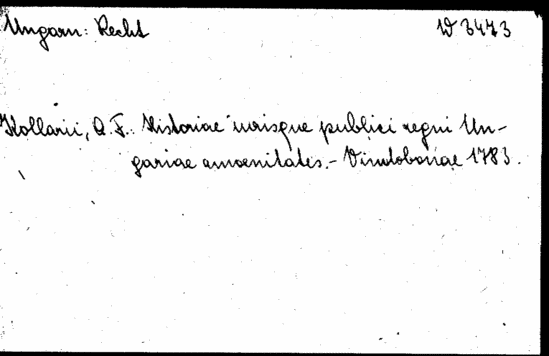 Ungarn: Recht
W 3473
Kollarii, A. F.. Historiae iurisque publici regni Un-
gariae amoenitates.- Vindobonae 1783.